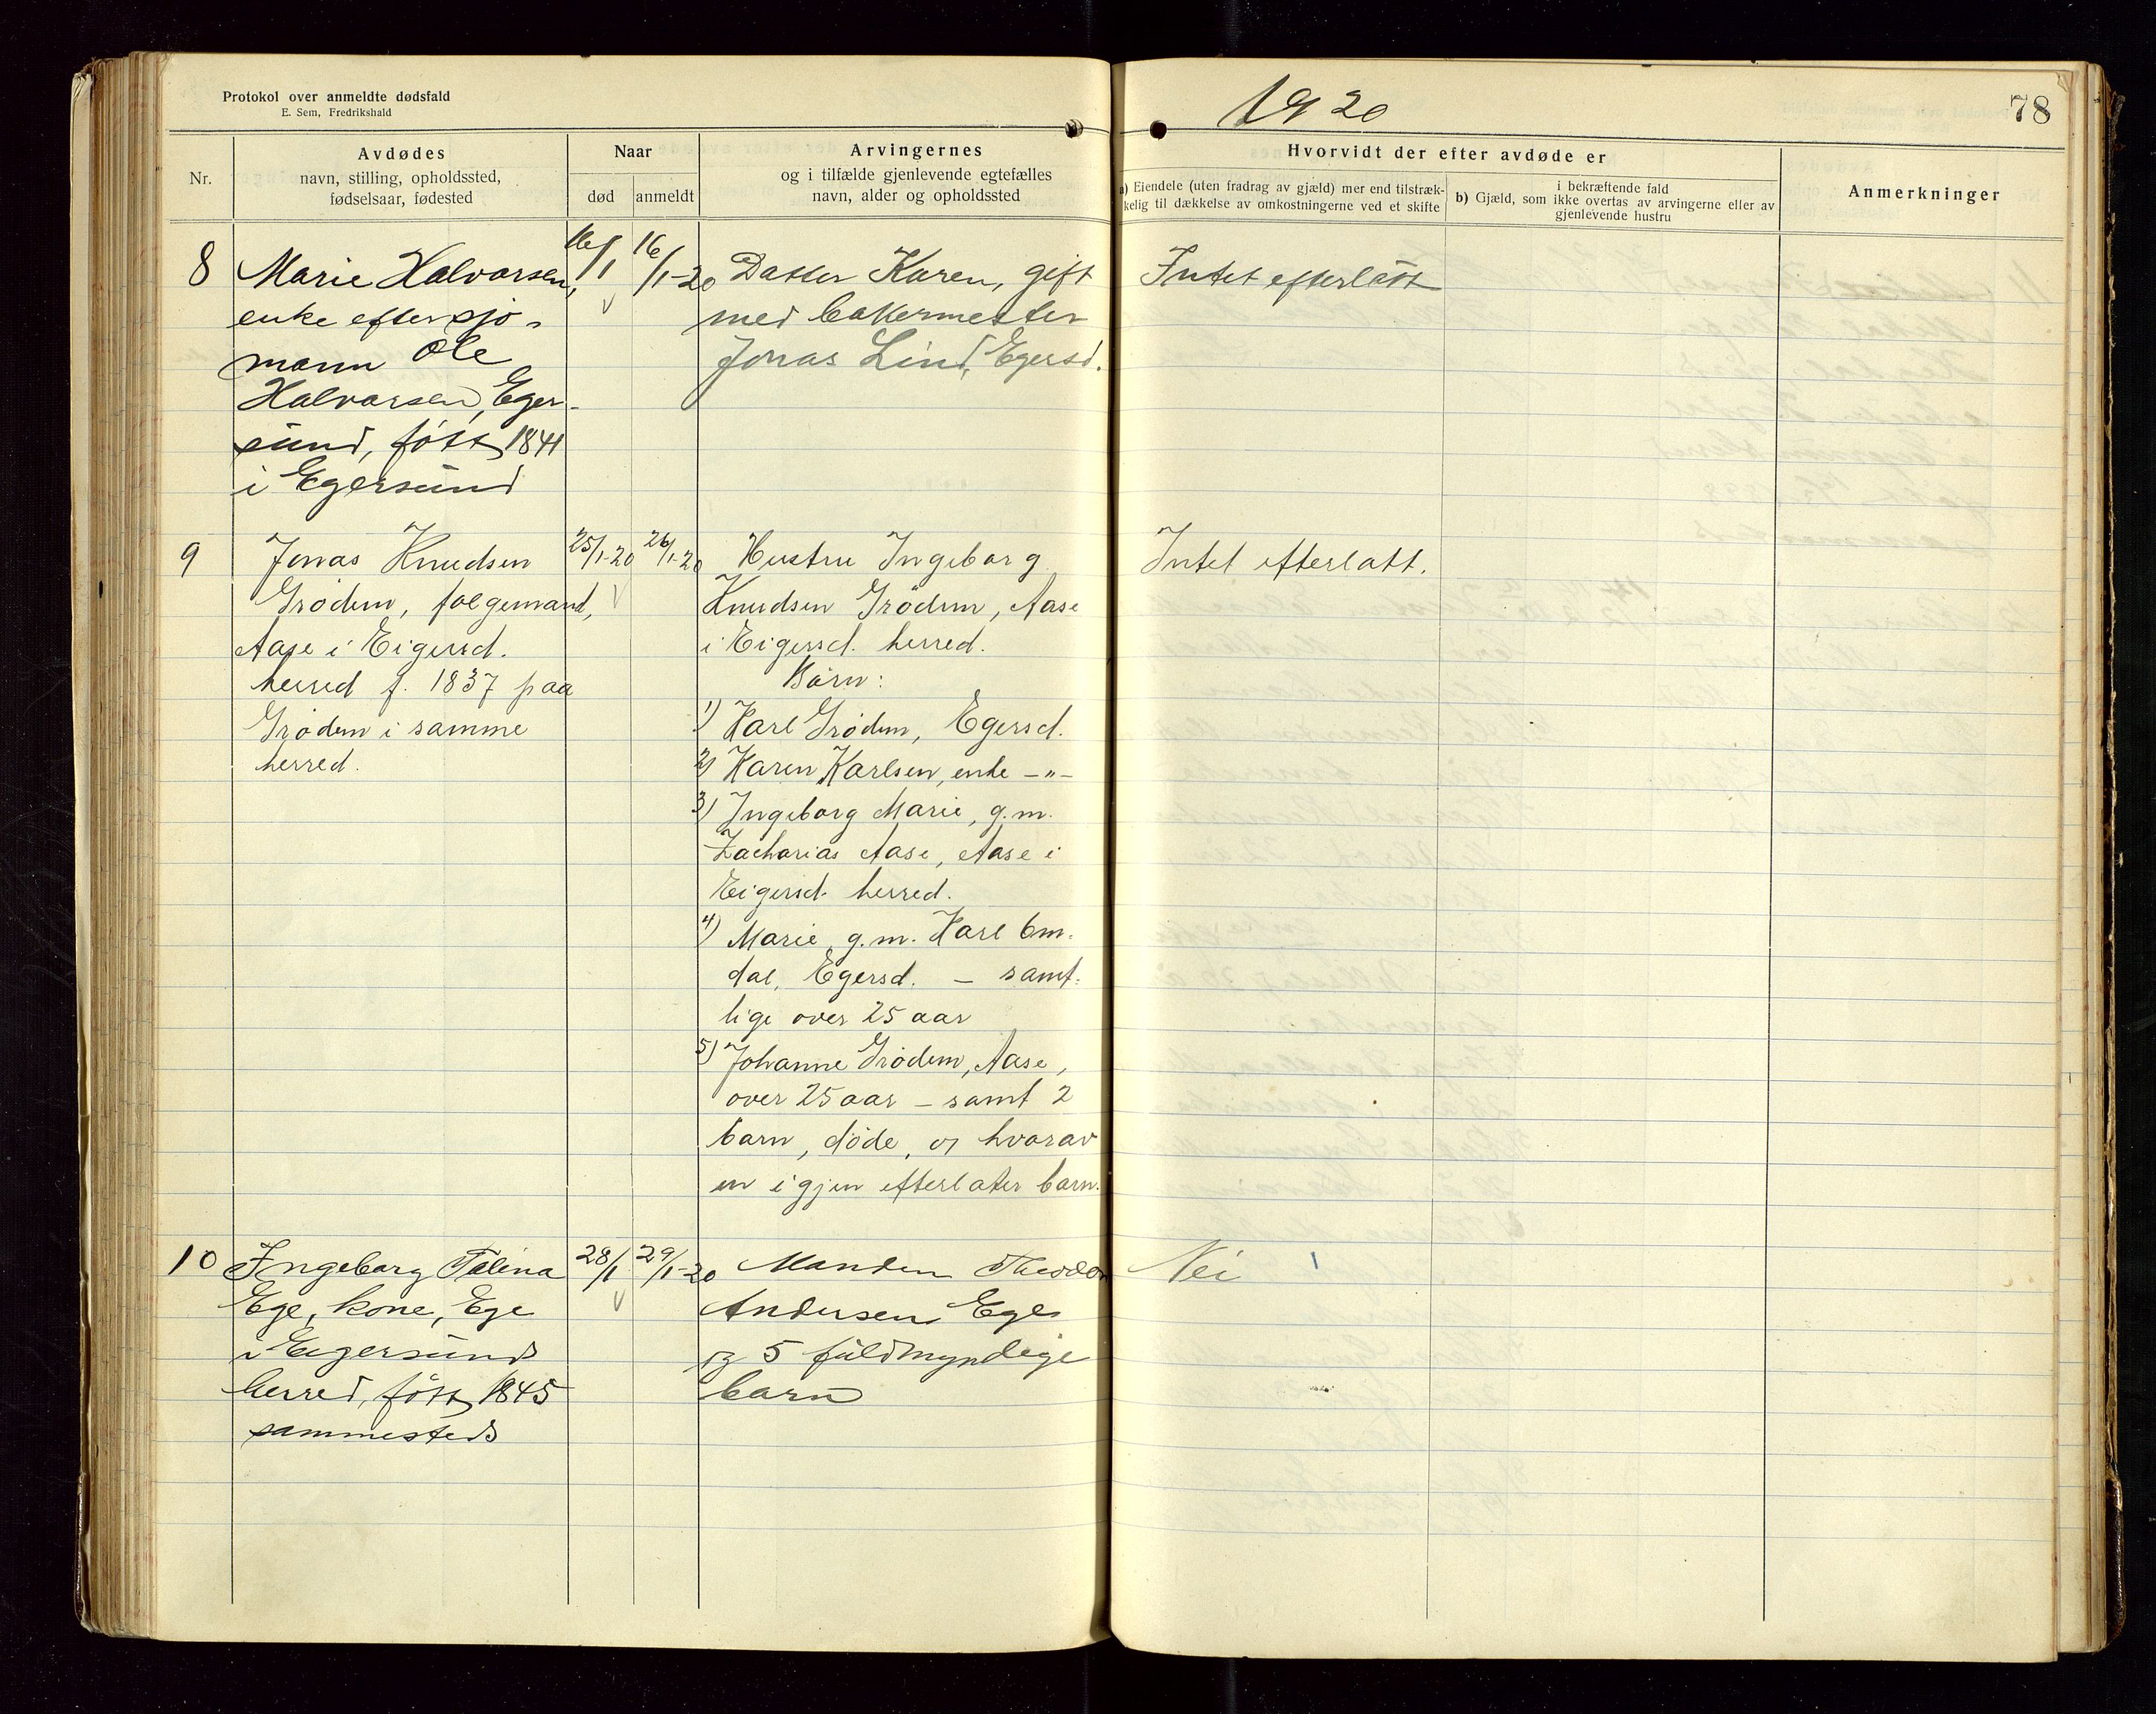 Protokol over anmeldte dødsfald
E. Sem, Fredrikshald
1920
78
Nr.
Avdødes
navn, stilling, opholdssted,
fødselsaar, fødested
Naar
død
anmeldt
Arvingernes
og i tilfælde gjenlevende egtefælles
navn, alder og opholdssted
Hvorvidt der efter avdøde er
a) Eiendele (uten fradrag av gjæld) mer end tilstræk-
kelig til dækkelse av omkostningerne ved et skifte
i bekræftende fald
b) Gjæld, som ikke overtas av arvingerne eller av
gjenlevende hustru
Anmerkninger
8
Marie Halvorsen,
enke efter sjø-
mann Ole
Halvorsen, Eger-
sund, født 1841
i Egersund
16/1
16/1-20
Datter Karen, gift
med bakermester
Jonas Lind, Egersd.
Intet efterlatt
9
Jonas Knudsen
Grødem, folgemand,
Aase i Eigersd.
herred f. 1837 paa
Grødem i samme
herred.
25/1-20
26/1-20
Hustru Ingeborg
Knudsen Grødem, Aase
i Eigersd. herred.
Børn:
1) Karl Grødem, Egersd.
2) Karen Karlsen, enke -"-
3) Ingeborg Marie, g.m.
Zacharias Aase, Aase i
Eigersd. herred.
4) Marie, g.m. Karl Om-
dal, Egersd. - samt-
lige over 25 aar
5) Johanne Grødem, Aase,
over 25 aar - samt 2
barn, døde, og hvorav
en igjen efterlater barn.
Intet efterlatt.
10
Ingeborg Talina
Ege, kone, Ege
i Eigersund
herred, født 1845
sammesteds
28/1
29/1-20
Manden Theodor
Andersen Ege
og 5 fuldmyndige
barn
Nei